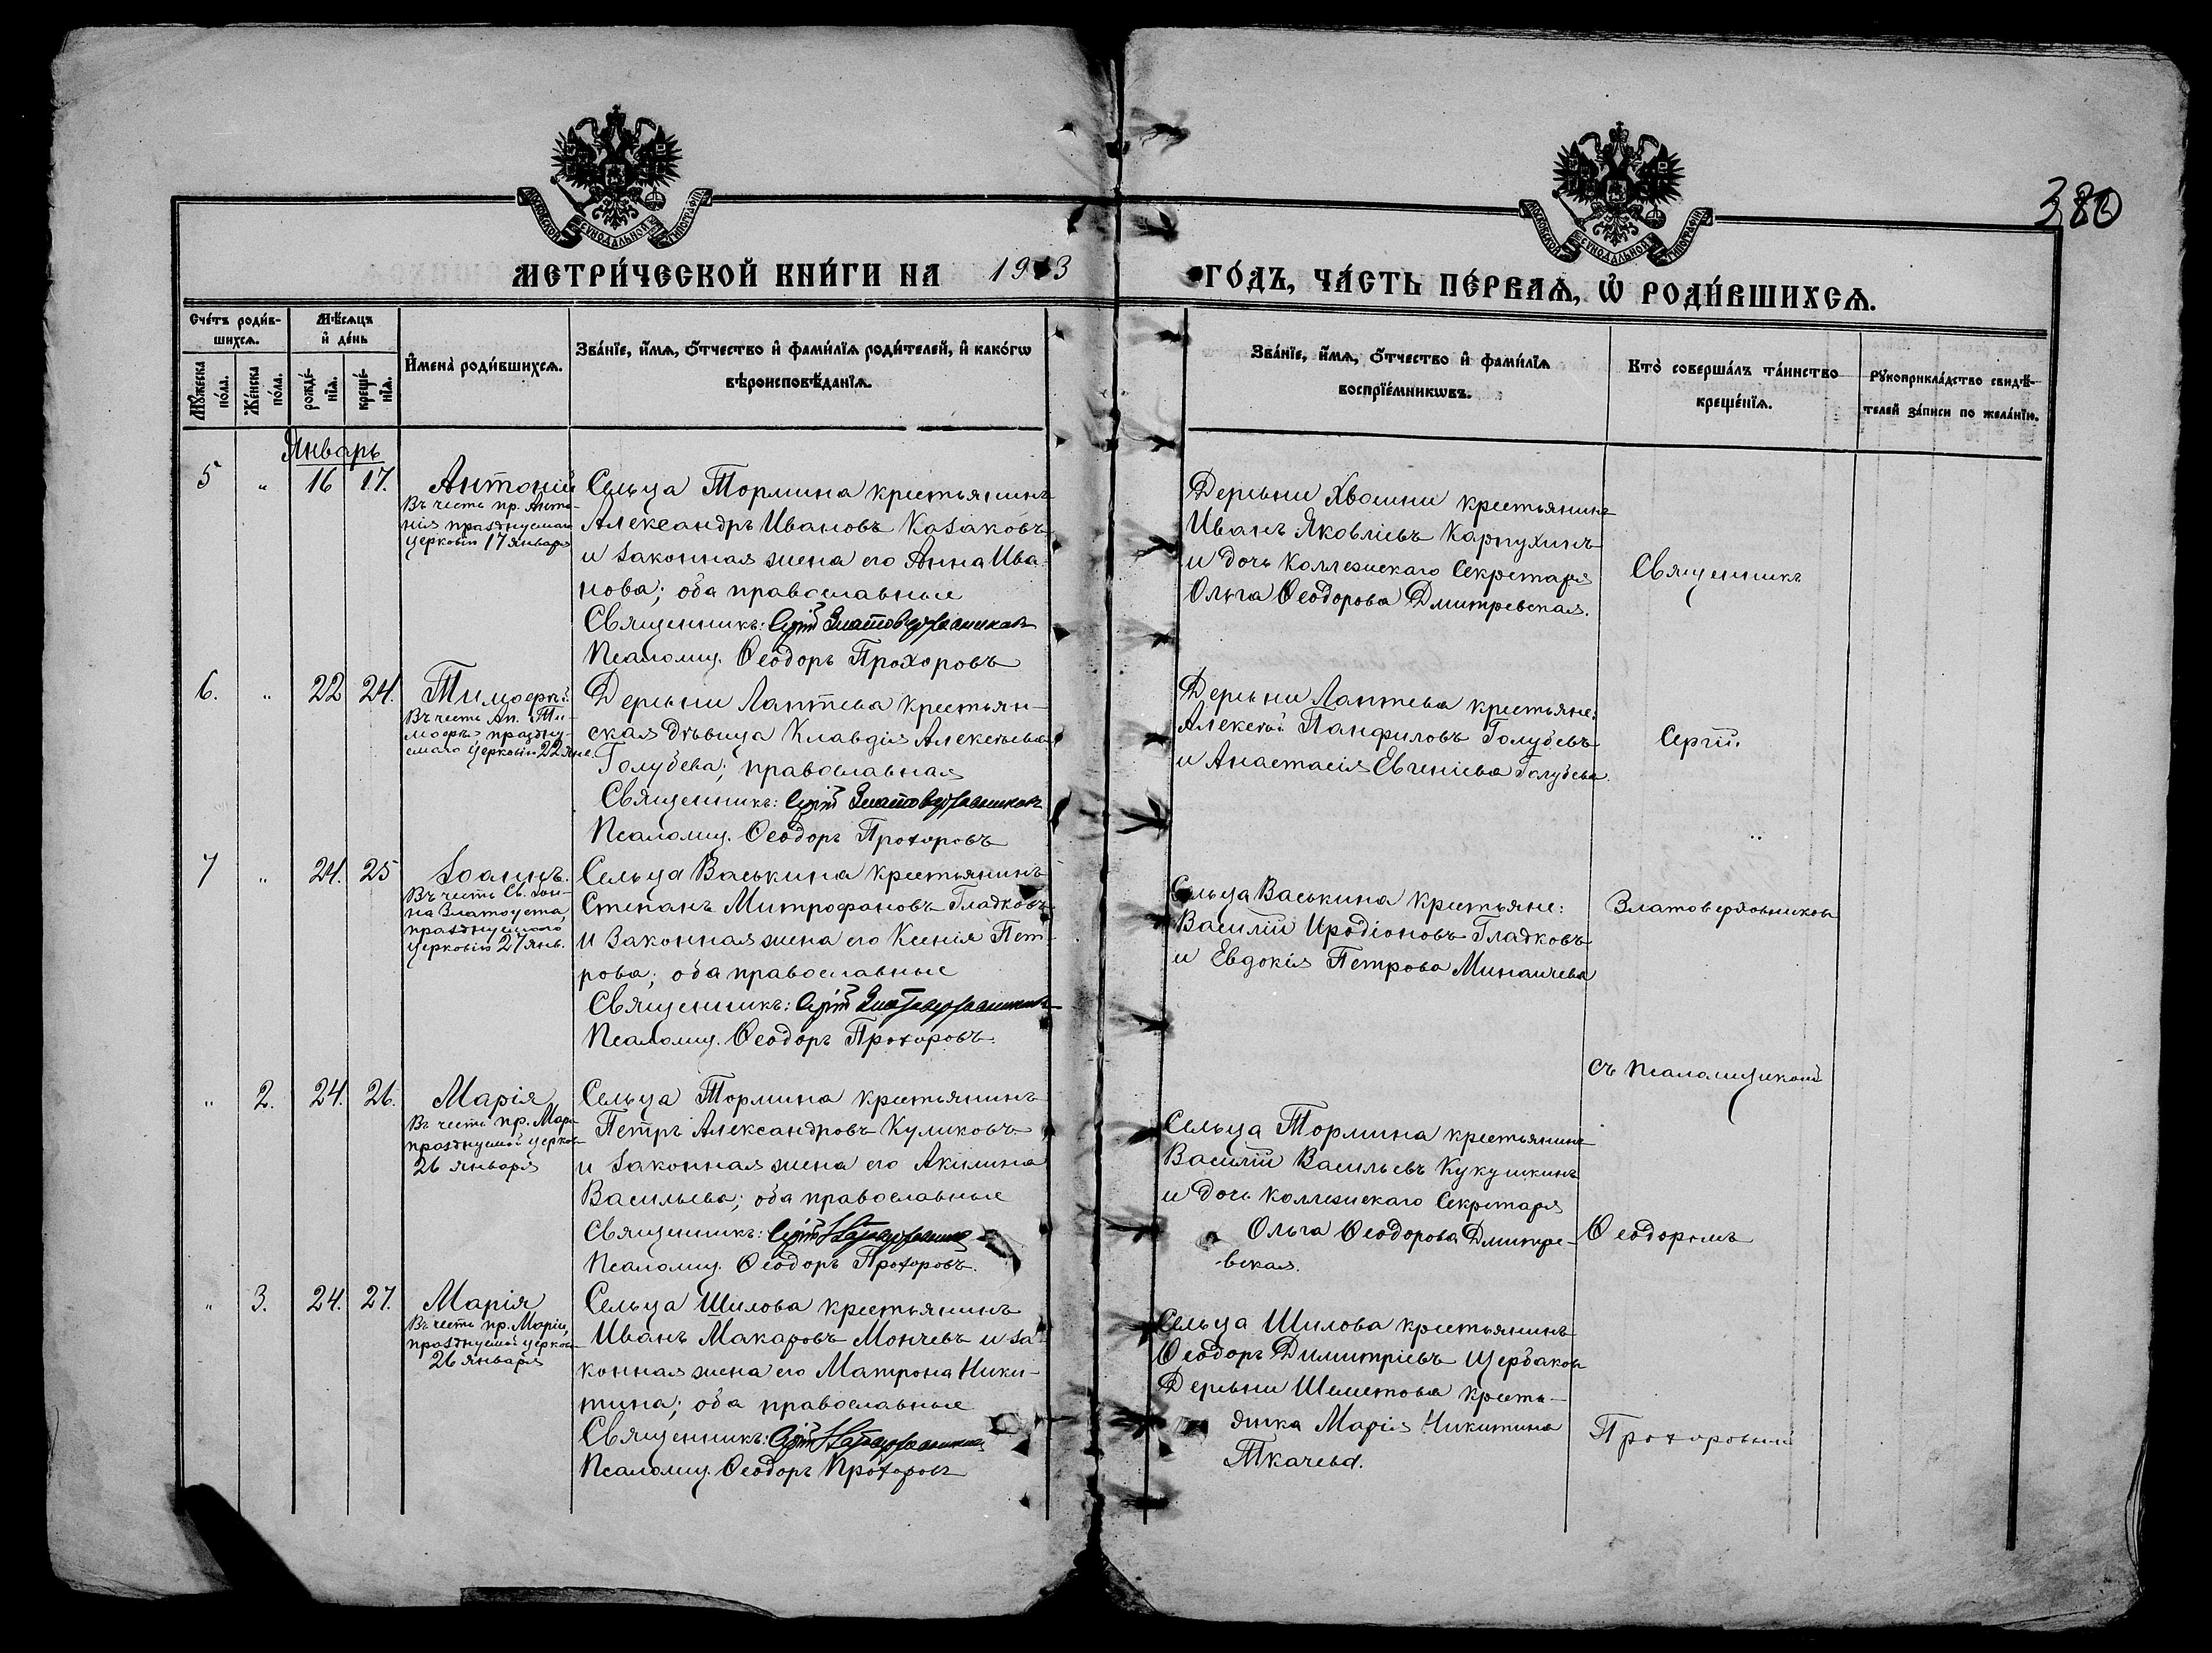 380
МОСКОВСКОЙ СѴНОДАЛЬНОЙ ТИПОГРАФІИ
МОСКОВСКОЙ СѴНОДАЛЬНОЙ ТИПОГРАФІИ
МЕТРИ́ЧЕСКОЙ КНИ́ГИ НА 1913 ГО́ДЪ, ЧА́СТЬ ПЕ́РВАѦ, Ѡ҆ РОДИ́ВШИХСѦ.
Сче́тъ роди́в-
шихсѧ.
Мꙋ́жеска по́ла.
Же́нска по́ла.
Мѣ́сѧцъ
и҆ де́нь
рожде́-
нїѧ.
креще́-
нїѧ.
И҆мена̀ роди́вшихсѧ.
Зва́нїе, и҆́мѧ, ѻ҆́тчество и҆ фами́лїѧ роди́телей, и҆ како́гѡ
вѣроисповѣ́данїѧ.
Зва́нїе, и҆́мѧ, ѻ҆́тчество и҆ фами́лїѧ
воспрїе́мникѡвъ.
Кто̀ соверша́лъ та́инство
креще́нїѧ.
Рꙋкоприкла́дство свидѣ́-
телей за́писи по жела́нїю.
Январь
5 " 16 17. Антоній
Въ честь пр. Анто-
нія празднуемаго
церковію 17 января
Сельца Тормина крестьянинъ
Александръ Ивановъ Казаковъ
и законная жена его Анна Ива-
нова; оба православные
Священникъ: Сергій Златоверховниковъ
Псаломщ. Ѳеодоръ Прохоровъ
Деревни Хвошни крестьянинъ
Иванъ Яковлевъ Карпухинъ
и дочь Коллежскаго Секретаря
Ольга Ѳеодорова Дмитревская.
Священникъ
6. " 22 24. Тимоѳей.
Въ честь Ап. Ти-
моѳея празну-
емаго церковію 22 янв.
Деревни Лаптева крестьян-
ская дѣвица Клавдія Алексѣева
Голубева; православная
Священникъ: Сергій Златоверховниковъ
Псаломщ. Ѳеодоръ Прохоровъ
Деревни Лаптева крестьяне:
Алексѣй Панфиловъ Голубевъ
и Анастасія Евгеніева Голубева.
Сергій.
7 " 24. 25 Іоаннъ.
Въ честь Св. Іоан-
на Златоуста,
празднуемаго
церковію 27 янв.
Сельца Васькина крестьянинъ
Степанъ Митрофановъ Гладковъ
и законная жена его Ксенія Пет-
рова; оба православные
Священникъ: Сергій Златоверховниковъ
Псаломщ. Ѳеодоръ Прохоровъ.
Сельца Васькина крестьяне:
Василій Иродіоновъ Гладковъ
и Евдокія Петрова Минаичева
Златоверховниковъ
съ псаломщикомъ
" 2. 24. 26. Марія
Въ честь пр. Маріи
празднуемой церков.
26 января
Сельца Тормина крестьянинъ
Петръ Александровъ Куликовъ
и законная жена его Акилина
Васильева; оба православные
Священникъ: Сергій Златоверховниковъ
Псаломщ. Ѳеодоръ Прохоровъ.
Сельца Тормина крестьянинъ
Василій Васильевъ Кукушкинъ
и дочь Коллежскаго Секретаря
Ольга Ѳеодорова Дмитре-
вская.
Ѳеодоромъ
" 3. 24. 27. Марія
Въ честь пр. Маріи,
празднуемой церков.
26 января
Сельца Шилова крестьянинъ
Иванъ Макаровъ Мончевъ и за-
конная жена его Матрона Ники-
тина; оба православные
Священникъ: Сергій Златоверховниковъ
Псаломщ. Ѳеодоръ Прохоровъ
Сельца Шилова крестьянинъ
Ѳеодоръ Димитріевъ Щербаковъ
Деревни Шеметова кресть-
янка Марія Никитина
Ткачева.
Прохоровымъ